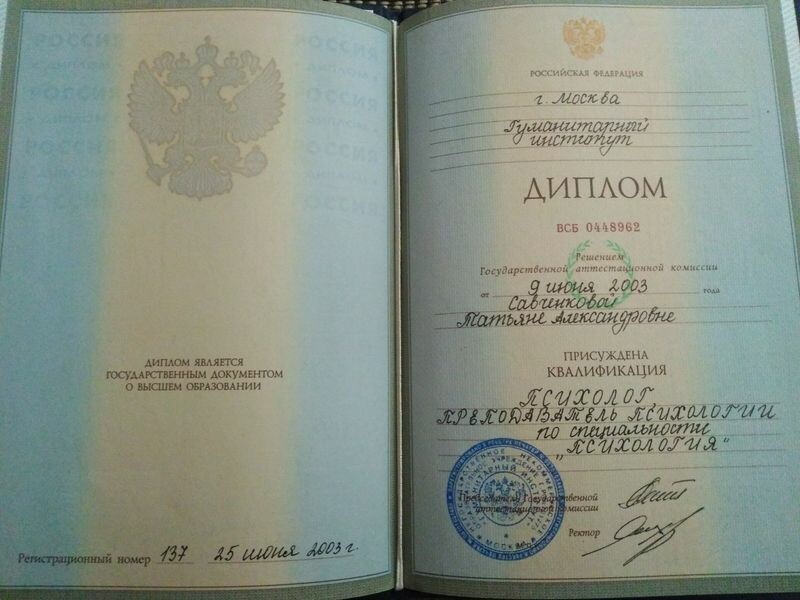 ДИПЛОМ ЯВЛЯЕТСЯ
ГОСУДАРСТВЕННЫМ ДОКУМЕНТОМ
О ВЫСШЕМ ОБРАЗОВАНИИ
Регистрационный номер 137 25 июня 2003 г.
РОССИЙСКАЯ ФЕДЕРАЦИЯ
г. Москва
Гуманитарный
институт
ДИПЛОМ
ВСБ 0448962
Решением
Государственной аттестационной комиссии
от 9 июня 2003 года
Савченковой
Татьяне Александровне
ПРИСУЖДЕНА
КВАЛИФИКАЦИЯ
ПСИХОЛОГ
ПРЕПОДАВАТЕЛЬ ПСИХОЛОГИИ
по специальности
„ПСИХОЛОГИЯ"
Председатель Государственной
аттестационной комиссии
Ректор
МОСКВА